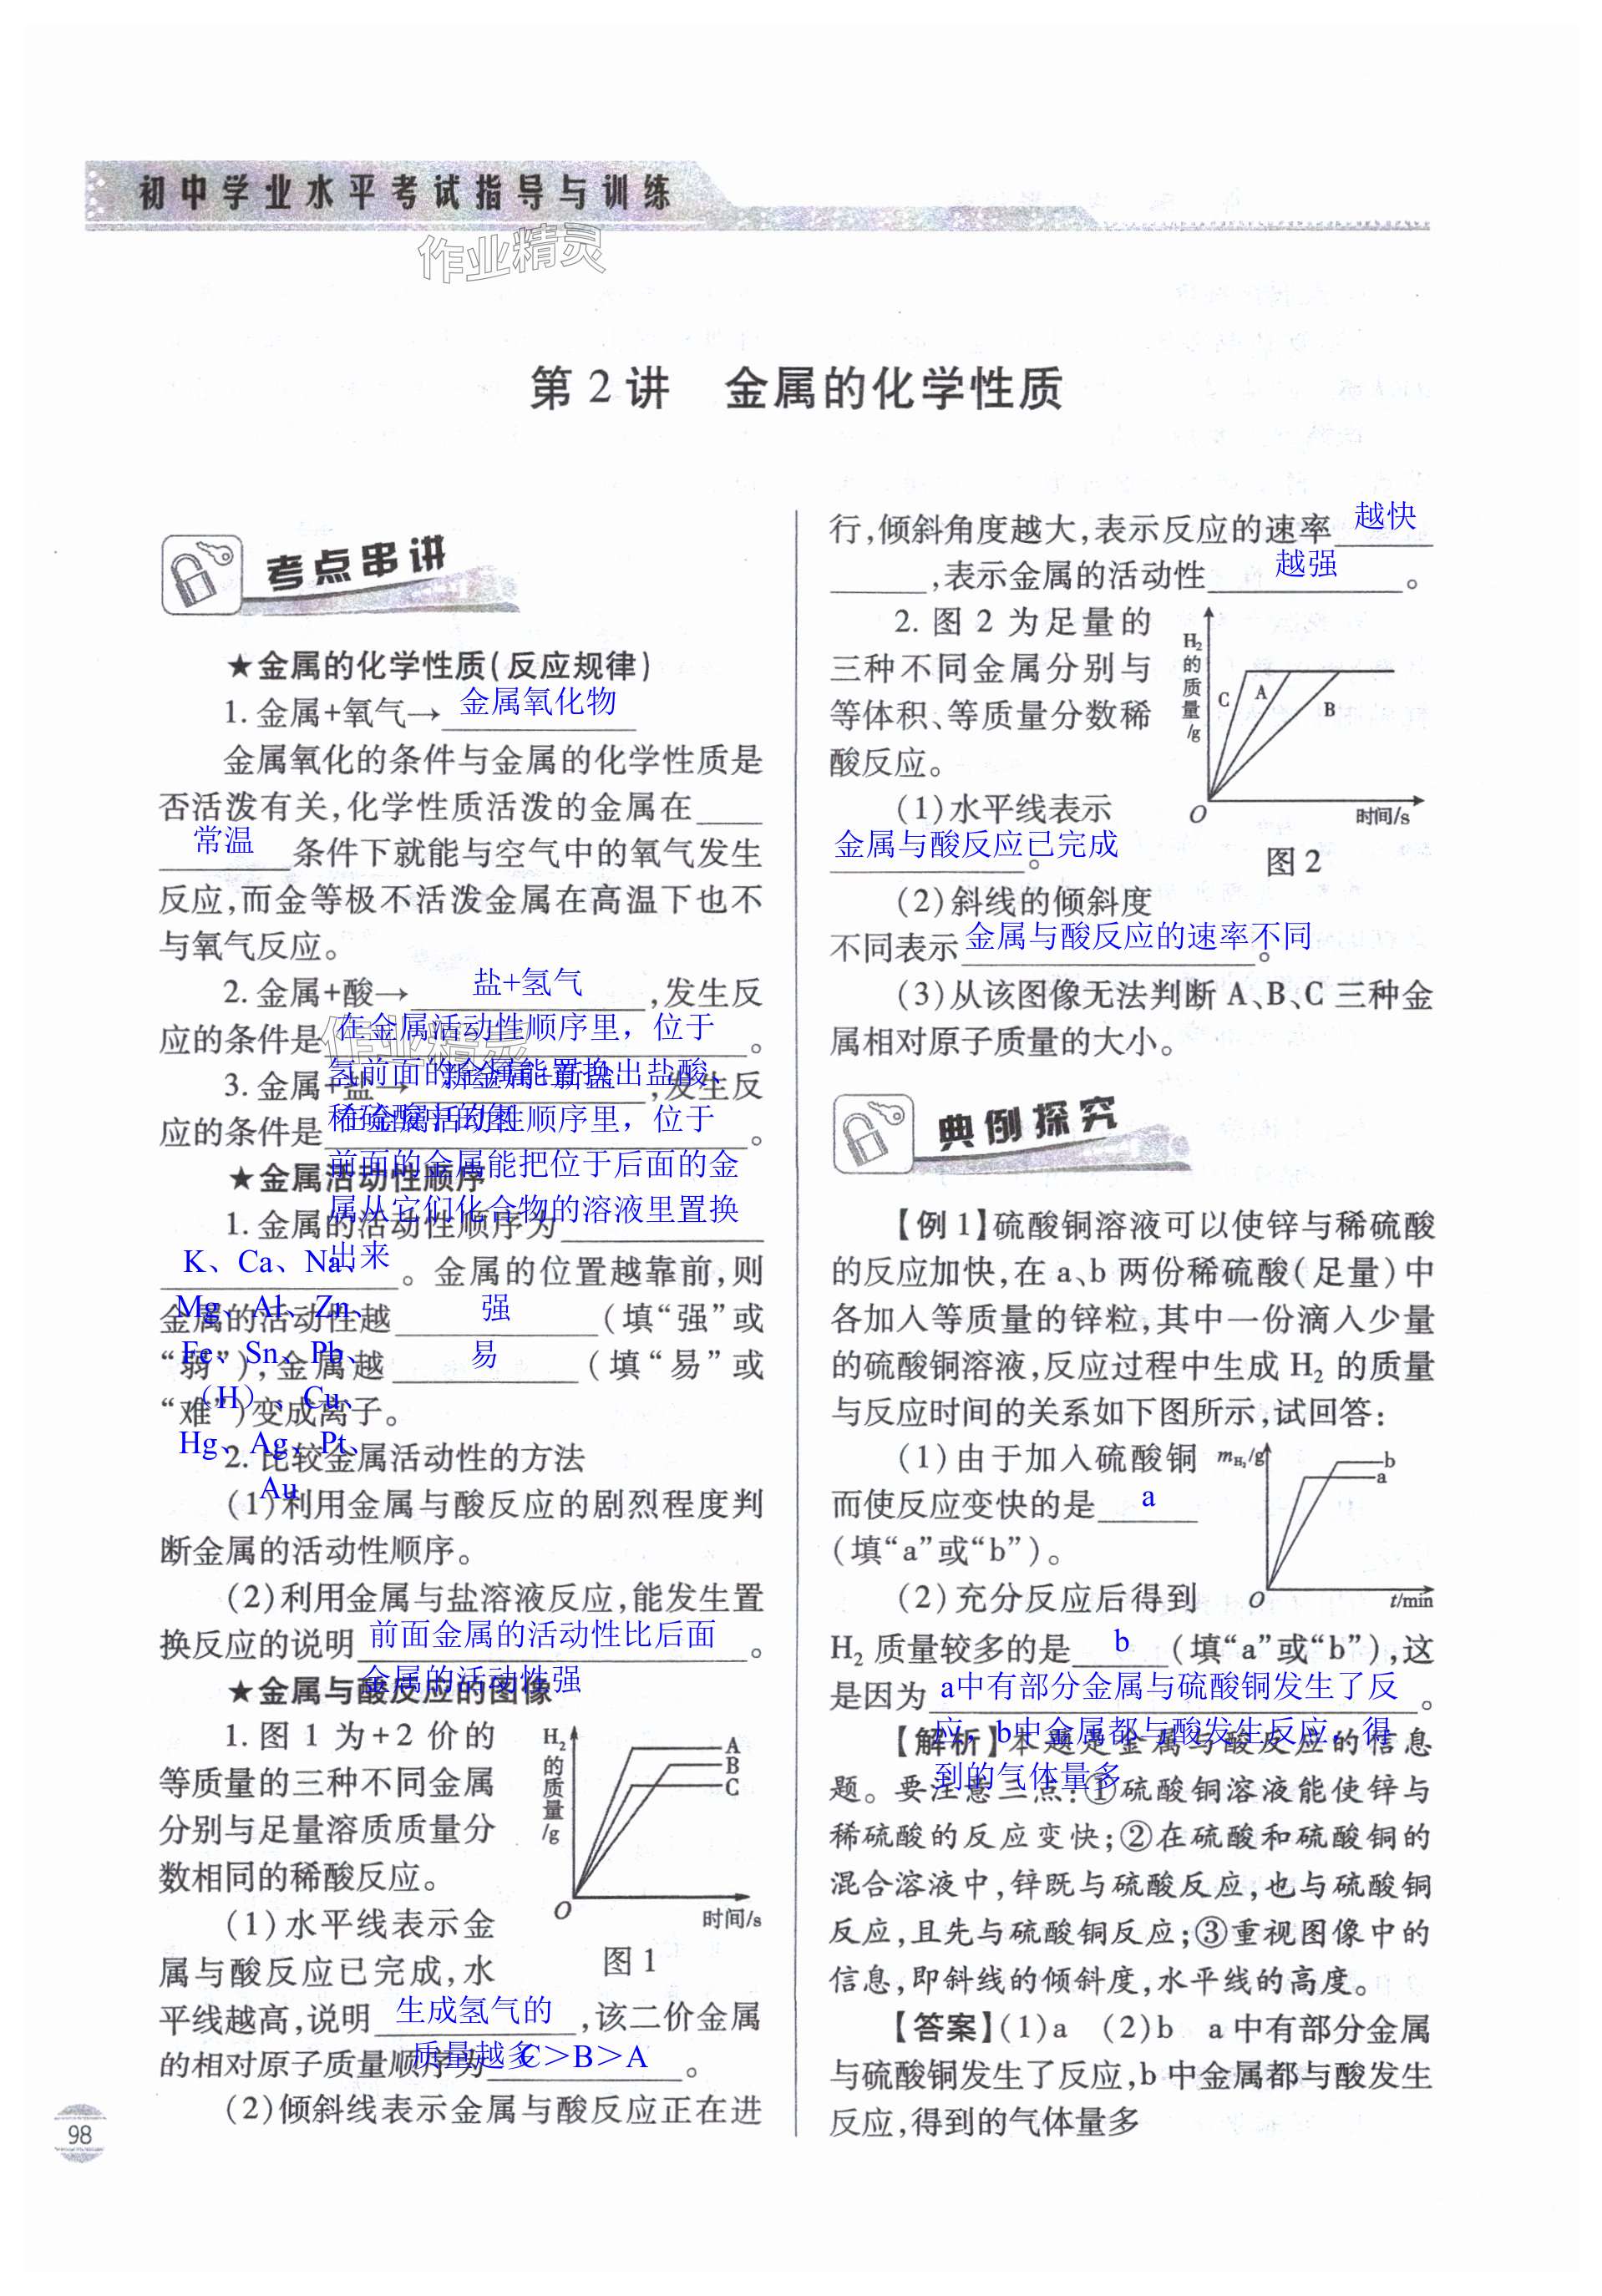 初中学业水平考试指导与训练
作业精灵
第2讲 金属的化学性质
考点串讲
★金属的化学性质(反应规律)
1. 金属+氧气→ 金属氧化物
金属氧化的条件与金属的化学性质是
否活泼有关,化学性质活泼的金属在
常温 条件下就能与空气中的氧气发生
反应,而金等极不活泼金属在高温下也不
与氧气反应。
2. 金属+酸→ 盐+氢气 ,发生反
应的条件是 在金属活动性顺序里，位于 。
氢前面的金属能置换出盐酸、
稀硫酸中的氢
作业精灵
3. 金属+盐→ 新金属+新盐 ,发生反
应的条件是 在金属活动性顺序里，位于 。
前面的金属能把位于后面的金
属从它们化合物的溶液里置换
出来
★金属活动性顺序
1. 金属的活动性顺序为
K、Ca、Na、 。金属的位置越靠前,则
Mg、Al、Zn、
Fe、Sn、Pb、
（H）、Cu、
Hg、Ag、Pt、
Au
金属的活动性越 强 (填“强”或
“弱”),金属越 易 (填“易”或
“难”)变成离子。
2. 比较金属活动性的方法
(1)利用金属与酸反应的剧烈程度判
断金属的活动性顺序。
(2)利用金属与盐溶液反应,能发生置
换反应的说明 前面金属的活动性比后面 。
金属的活动性强
★金属与酸反应的图像
1. 图1为+2价的
等质量的三种不同金属
分别与足量溶质质量分
数相同的稀酸反应。
H₂的质量/g
A
B
C
O
时间/s
图1
(1)水平线表示金
属与酸反应已完成,水
平线越高,说明 生成氢气的 ,该二价金属
质量越多
的相对原子质量顺序为 C＞B＞A 。
(2)倾斜线表示金属与酸反应正在进
98
行,倾斜角度越大,表示反应的速率 越快
,表示金属的活动性 越强 。
2. 图2为足量的
三种不同金属分别与
等体积、等质量分数稀
酸反应。
H₂的质量/g
C
A
B
O
时间/s
图2
(1)水平线表示
金属与酸反应已完成 。
(2)斜线的倾斜度
不同表示 金属与酸反应的速率不同 。
(3)从该图像无法判断A、B、C三种金
属相对原子质量的大小。
典例探究
【例1】硫酸铜溶液可以使锌与稀硫酸
的反应加快,在a、b两份稀硫酸(足量)中
各加入等质量的锌粒,其中一份滴入少量
的硫酸铜溶液,反应过程中生成H₂的质量
与反应时间的关系如下图所示,试回答:
(1)由于加入硫酸铜
而使反应变快的是 a
(填“a”或“b”)。
m H₂/g
b
a
O
t/min
(2)充分反应后得到
H₂质量较多的是 b (填“a”或“b”),这
是因为 a中有部分金属与硫酸铜发生了反 。
应，b中金属都与酸发生反应，得
到的气体量多
【解析】本题是金属与酸反应的信息
题。要注意三点:①硫酸铜溶液能使锌与
稀硫酸的反应变快;②在硫酸和硫酸铜的
混合溶液中,锌既与硫酸反应,也与硫酸铜
反应,且先与硫酸铜反应;③重视图像中的
信息,即斜线的倾斜度,水平线的高度。
【答案】(1)a (2)b a中有部分金属
与硫酸铜发生了反应,b中金属都与酸发生
反应,得到的气体量多